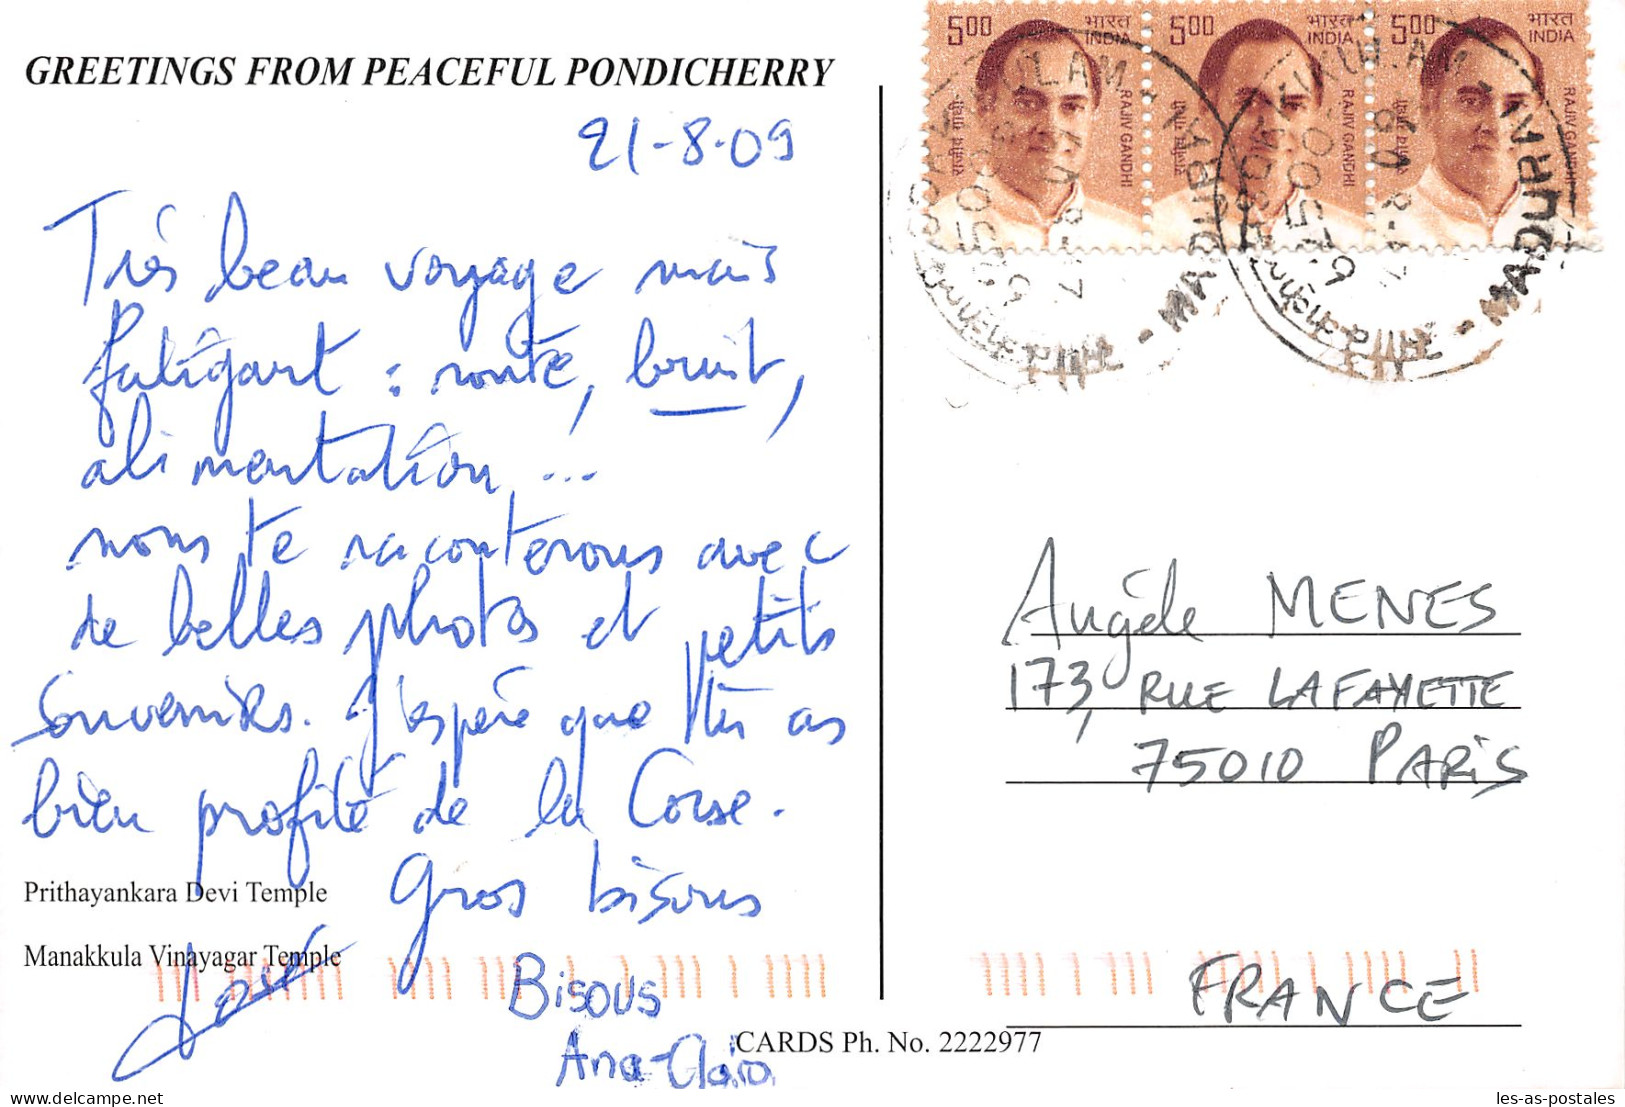 GREETINGS FROM PEACEFUL PONDICHERRY
21-8-09
Très beau voyage mais
fatigant : route, bruit,
alimentation, ...
nous te raconterons avec
de belles photos et petits
souvenirs. J'espère que tu as
bien profité de la Corse.
Gros bisous
Prithayankara Devi Temple
Manakkula Vinayagar Temple
José
Bisous
Ana-Clara
CARDS Ph. No. 2222977
500 भारत INDIA RAJIV GANDHI
500 भारत INDIA RAJIV GANDHI
500 भारत INDIA RAJIV GANDHI
MADURAI
MADURAI
Angèle MENES
173, RUE LAFAYETTE
75010 PARIS
FRANCE
www.delcampe.net
les-as-postales